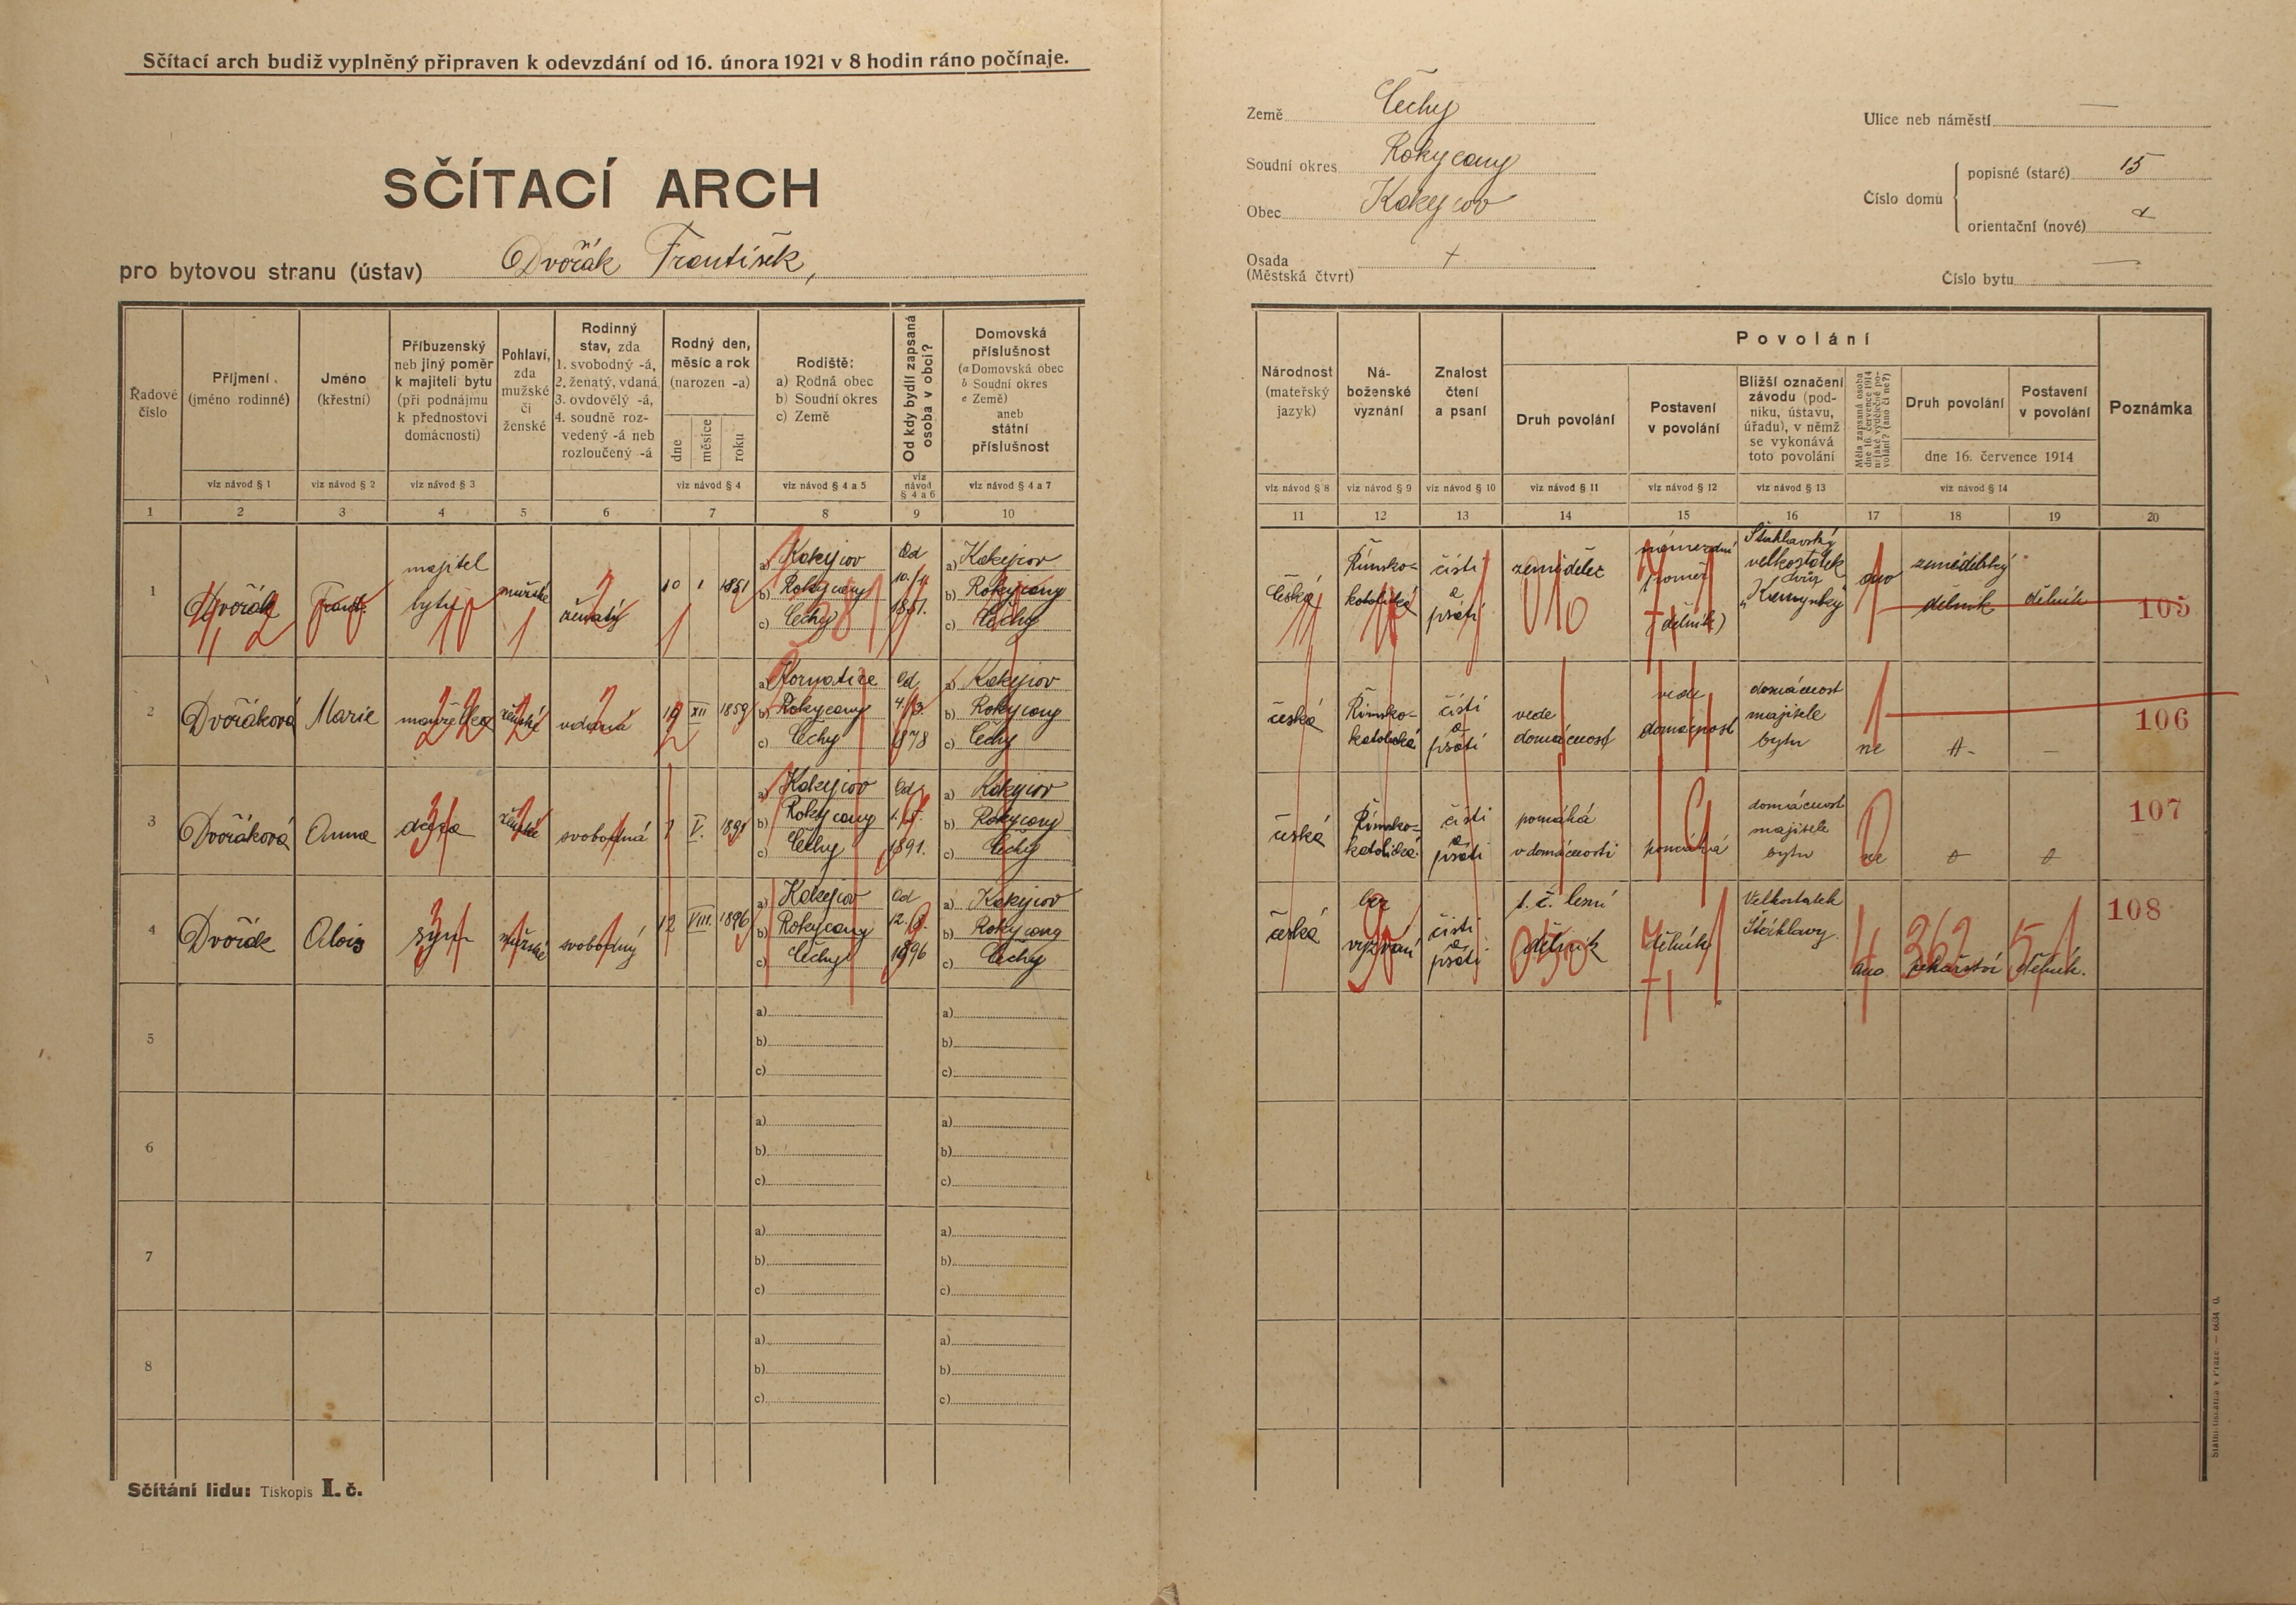 Sčítací arch budiž vyplněný připraven k odevzdání od 16. února 1921 v 8 hodin ráno počínaje.
SČÍTACÍ ARCH
pro bytovou stranu (ústav) Dvořák František,
Země Čechy
Soudní okres Rokycany
Obec Kakejcov
Osada +
(Městská čtvrt)
Ulice neb náměstí —
Číslo domu
popisné (staré) 15
orientační (nové)
Číslo bytu —
Řadové číslo
Příjmení (jméno rodinné)
Jméno (křestní)
Příbuzenský neb jiný poměr k majiteli bytu (při podnájmu k přednostovi domácnosti)
Pohlaví, zda mužské či ženské
Rodinný stav, zda 1. svobodný -á, 2. ženatý, vdaná, 3. ovdovělý -á, 4. soudně rozvedený -á neb rozloučený -á
Rodný den, měsíc a rok (narozen -a)
dne měsíce roku
Rodiště: a) Rodná obec b) Soudní okres c) Země
Od kdy bydlí zapsaná osoba v obci?
Domovská příslušnost (a Domovská obec b Soudní okres c Země) aneb státní příslušnost
Národnost (mateřský jazyk)
Náboženské vyznání
Znalost čtení a psaní
Povolání
Druh povolání
Postavení v povolání
Bližší označení závodu (podniku, ústavu, úřadu), v němž se vykonává toto povolání
Měla zapsaná osoba dne 16. července 1914 nějaké výdělečné povolání? (ano či ne?)
Druh povolání
Postavení v povolání
dne 16. července 1914
Poznámka
viz návod § 1 viz návod § 2 viz návod § 3 viz návod § 4 viz návod § 4 a 5 viz návod § 4 a 6 viz návod § 4 a 7
viz návod § 8 viz návod § 9 viz návod § 10 viz návod § 11 viz návod § 12 viz návod § 13 viz návod § 14
1 2 3 4 5 6 7 8 9 10
11 12 13 14 15 16 17 18 19 20
1 Dvořák Frant. majitel bytu mužské ženatý 10 I 1851
a) Kakejcov
b) Rokycany
c) Čechy
Od 1851.
a) Kakejcov
b) Rokycany
c) Čechy
česká Římsko-katolické čísti a psáti zemědělec poměr (dělník)
velkostatek dvůr
ano zemědělský dělník dělník 105
2 Dvořáková Marie manželka ženské vdaná 19 XII 1859
a) Kornatice
b) Rokycany
c) Čechy
Od 1878
a) Kakejcov
b) Rokycany
c) Čechy
česká Římsko-katolická čísti a psáti vede domácnost vede domácnost domácnost majitele bytu ne — 106
3 Dvořáková Anna dcera ženské svobodná V. 1891
a) Kakejcov
b) Rokycany
c) Čechy
Od 1891.
a) Kakejcov
b) Rokycany
c) Čechy
česká Římsko-katolická čísti a psáti pomáhá v domácnosti pomáhá domácnost majitele bytu ne 107
4 Dvořák Alois syn mužské svobodný 12 VIII. 1896
a) Kakejcov
b) Rokycany
c) Čechy
Od 1896
a) Kakejcov
b) Rokycany
c) Čechy
česká bez vyznání čísti a psáti t. č. lesní dělník dělník Velkostatek Štáhlavy. ano 362 pekařství dělník. 108
5 a) b) c) a) b) c)
6 a) b) c) a) b) c)
7 a) b) c) a) b) c)
8 a) b) c) a) b) c)
Sčítání lidu: Tiskopis I. č.
Státní tiskárna v Praze.